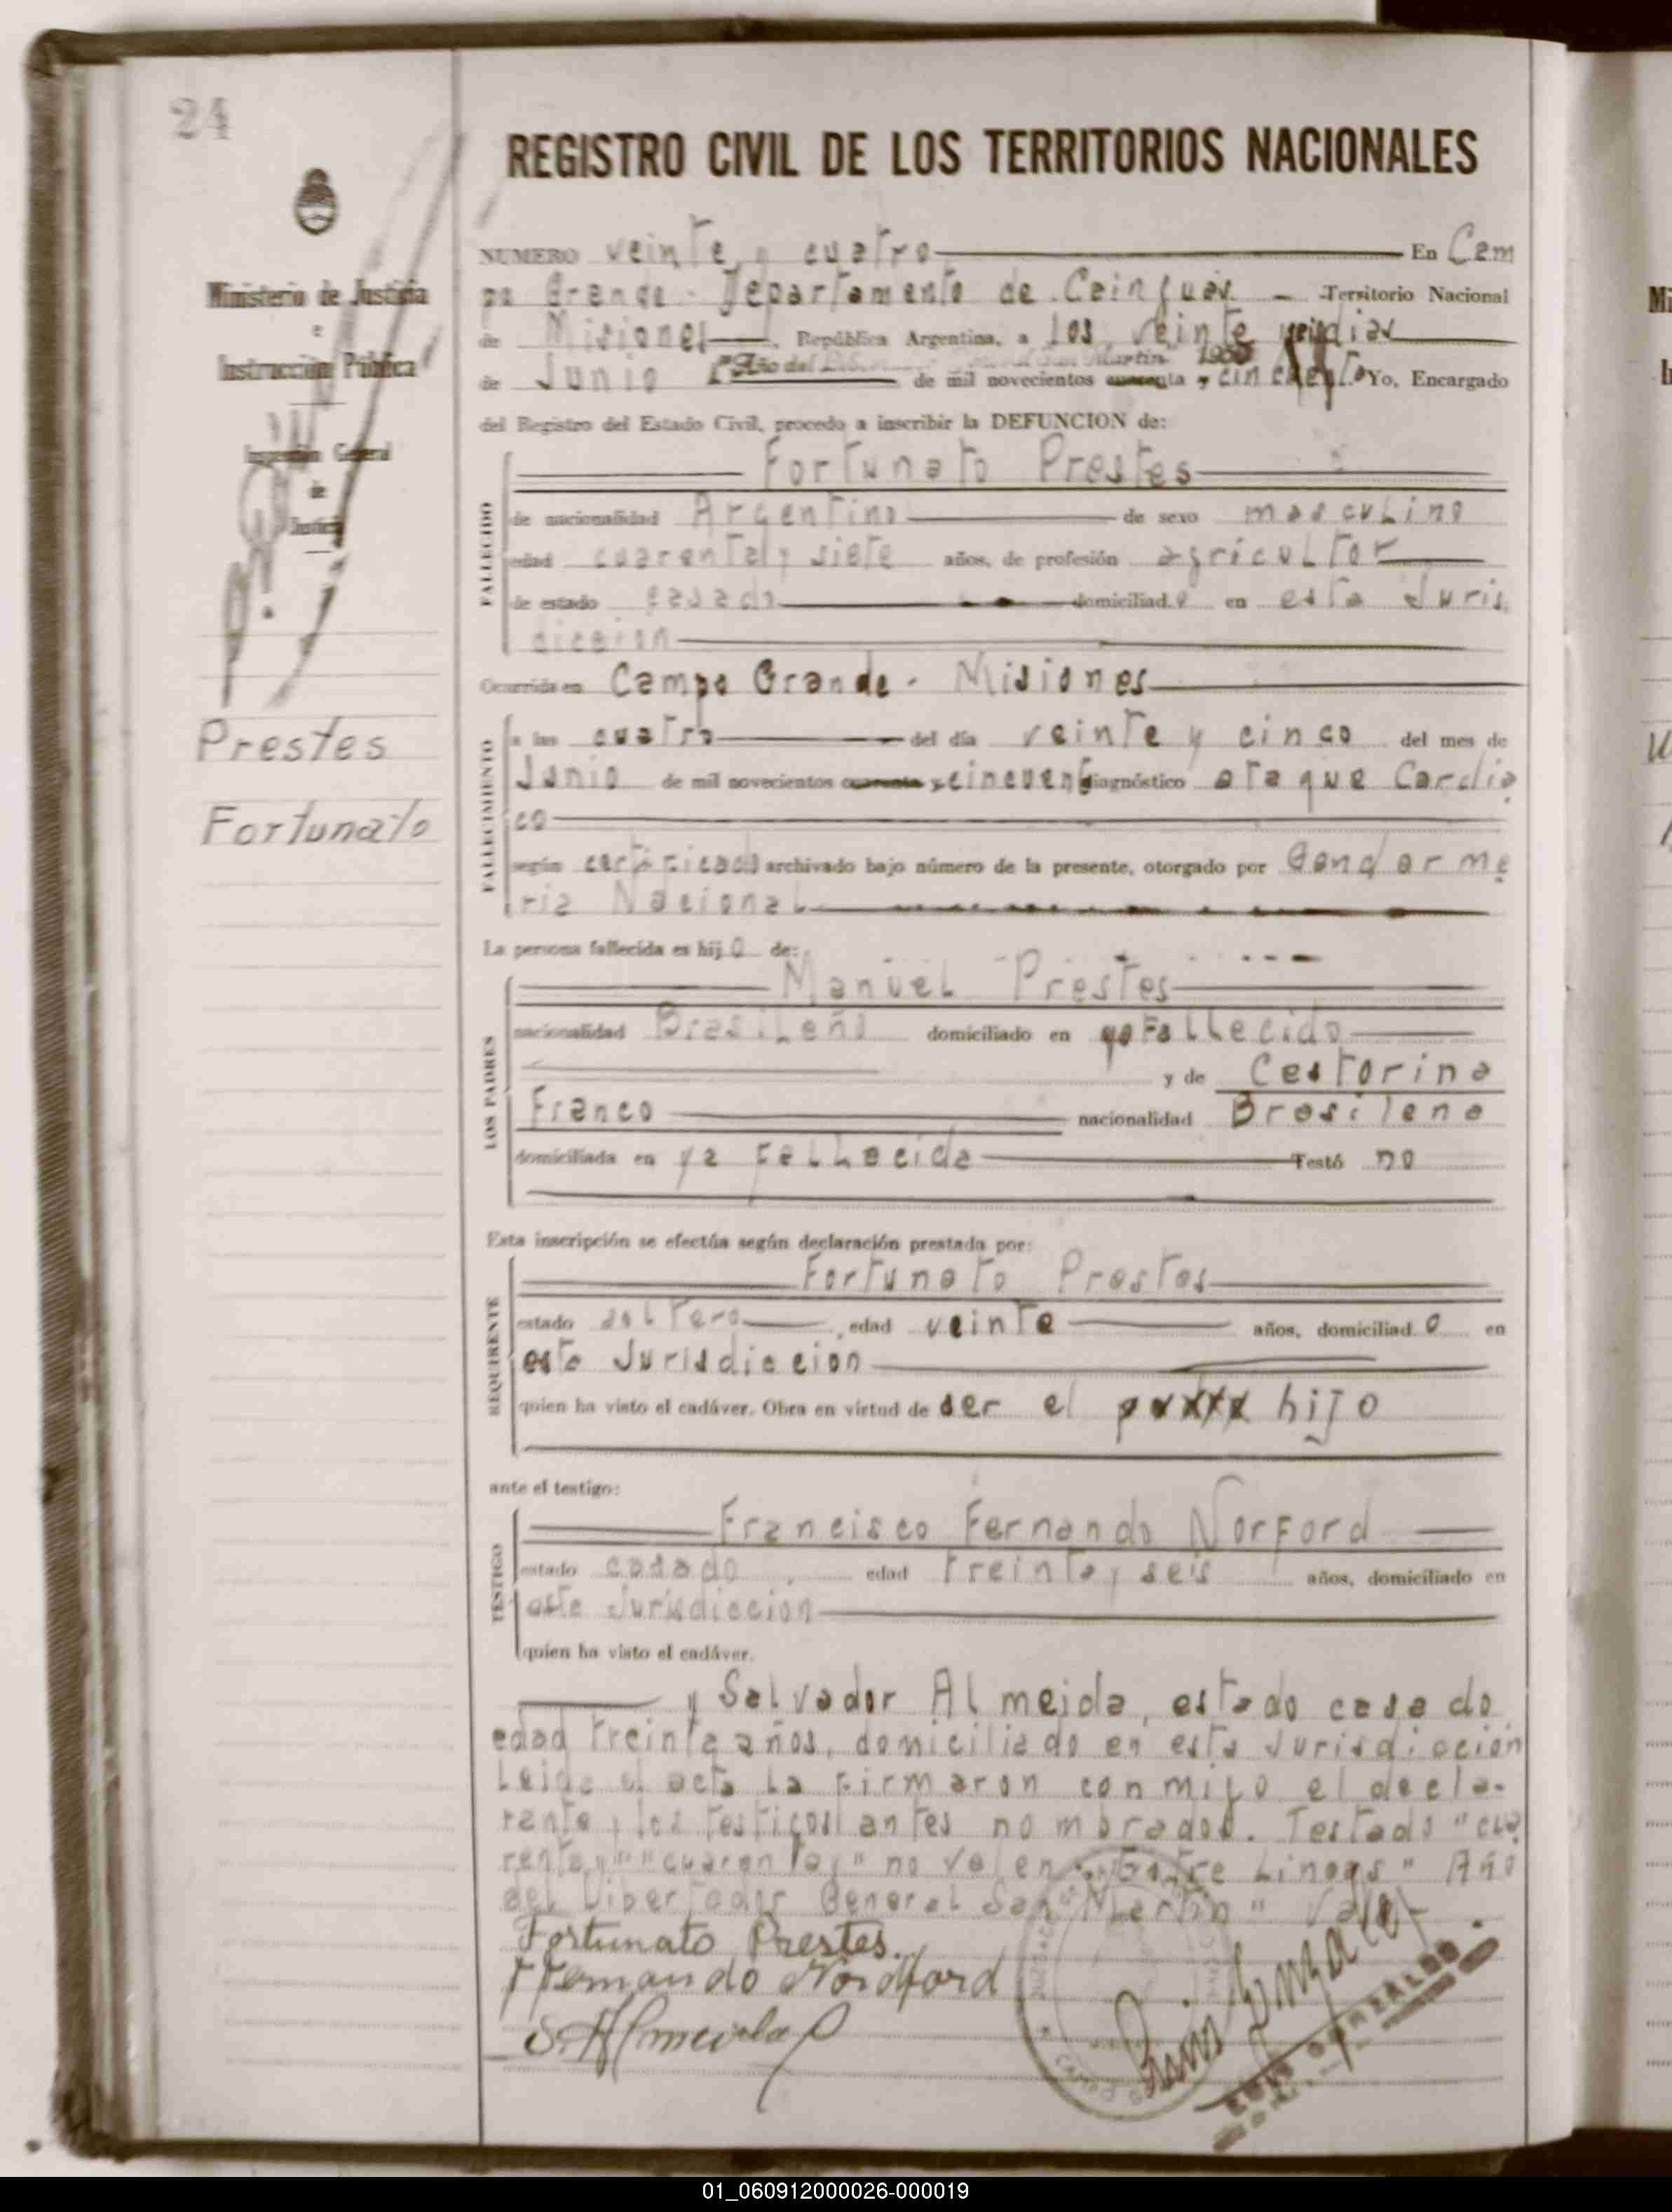 24
REGISTRO CIVIL DE LOS TERRITORIOS NACIONALES
Ministerio de Justicia
e
Instrucción Pública
Inspección General
de
Justicia
Prestes
Fortunato
NUMERO veinte y cuatro En Cam
po Grande - Departamento de Cainguás - Territorio Nacional
de Misiones, República Argentina, a los veinte seis dias
de Junio "Año del San Martin" 1950 de mil novecientos cuarenta y cincuenta Yo, Encargado
del Registro del Estado Civil, procedo a inscribir la DEFUNCION de:
FALLECIDO
Fortunato Prestes
de nacionalidad Argentino de sexo mascuLino
edad cuarenta y siete años, de profesión agricultor
de estado casado domiciliado en esta Juris
diccion
Ocurrida en Campo Grande - Misiones
FALLECIMIENTO
a las cuatro del día veinte y cinco del mes de
Junio de mil novecientos cuarenta y cincuenta diagnóstico ataque Cardia
co
según certificado archivado bajo número de la presente, otorgado por Gendarme
ria Nacional
La persona fallecida es hijo de:
LOS PADRES
Manuel Prestes
nacionalidad Brasileño domiciliado en ya fallecido
y de Cestorina
Franco nacionalidad Brasilena
domiciliada en ya fallecida Testó no
Esta inscripción se efectúa según declaración prestada por:
REQUIRENTE
Fortunato Prestes
estado soltero, edad veinte años, domiciliado en
esta Jurisdiccion
quien ha visto el cadáver. Obra en virtud de ser el hijo
ante el testigo:
TESTIGO
Francisco Fernando Norford
estado casado edad treinta y seis años, domiciliado en
esta Jurisdiccion
quien ha visto el cadáver.
y Salvador Almeida, estado casado
edad treinta años, domiciliado en esta Jurisdiccion
Leida el acta la firmaron conmigo el decla-
rante y los testigos antes nombrados. Testado "cua
renta y" "cuarenta y" no valen. Entre Lineas "Año
del Libertador General San Martin" Vale.
Fortunato Prestes.
F Fernando Nordford
S. Almeida
Luis Gonzalez
01_060912000026-000019